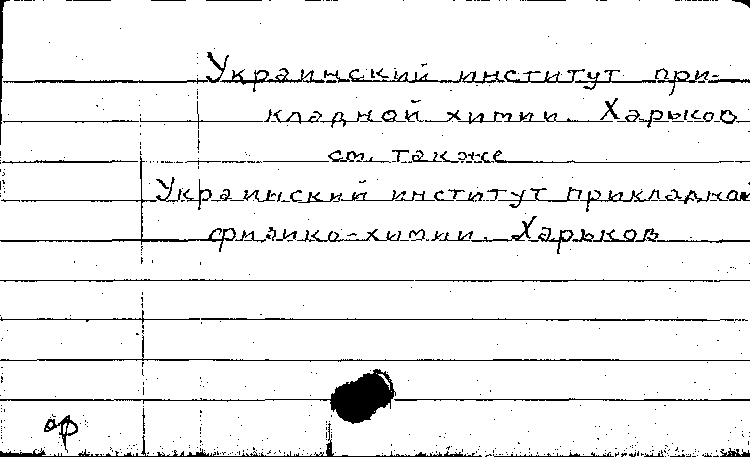 Украинский институт при-
кладной химии. Харьков
см. также
Украинский институт прикладной
физико-химии. Харьков
ар